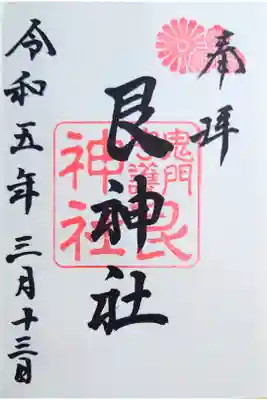 奉拝
艮神社
鬼門
守護艮
神社
令和五年三月十三日